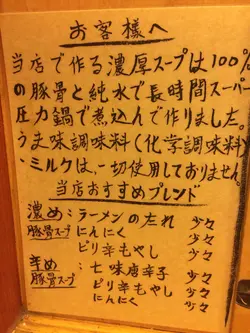 お客様へ
当店で作る濃厚スープは100%
の豚骨と純水で長時間スーパー
圧力鍋で煮込んで作りました。
うま味調味料(化学調味料)
・ミルクは、一切使用しておりません
当店おすすめブレンド
濃め:ラーメンのたれ 少々
豚骨スープ にんにく 少々
ピリ辛もやし 少々
辛め:七味唐辛子 少々
豚骨スープ ピリ辛もやし 少々
にんにく 少々